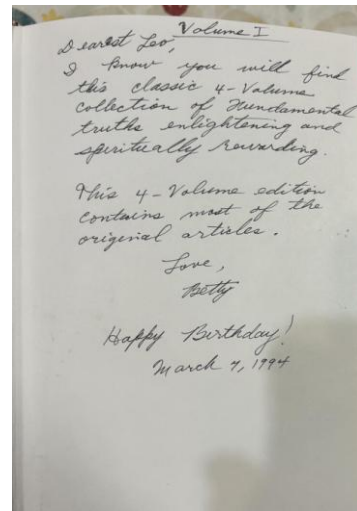 Volume I
Dearest Leo,
I know you will find
this classic 4-Volume
collection of Fundamental
truths enlightening and
spiritually rewarding.
This 4-Volume edition
contains most of the
original articles.
Love,
Betty
Happy Birthday!
March 7, 1994